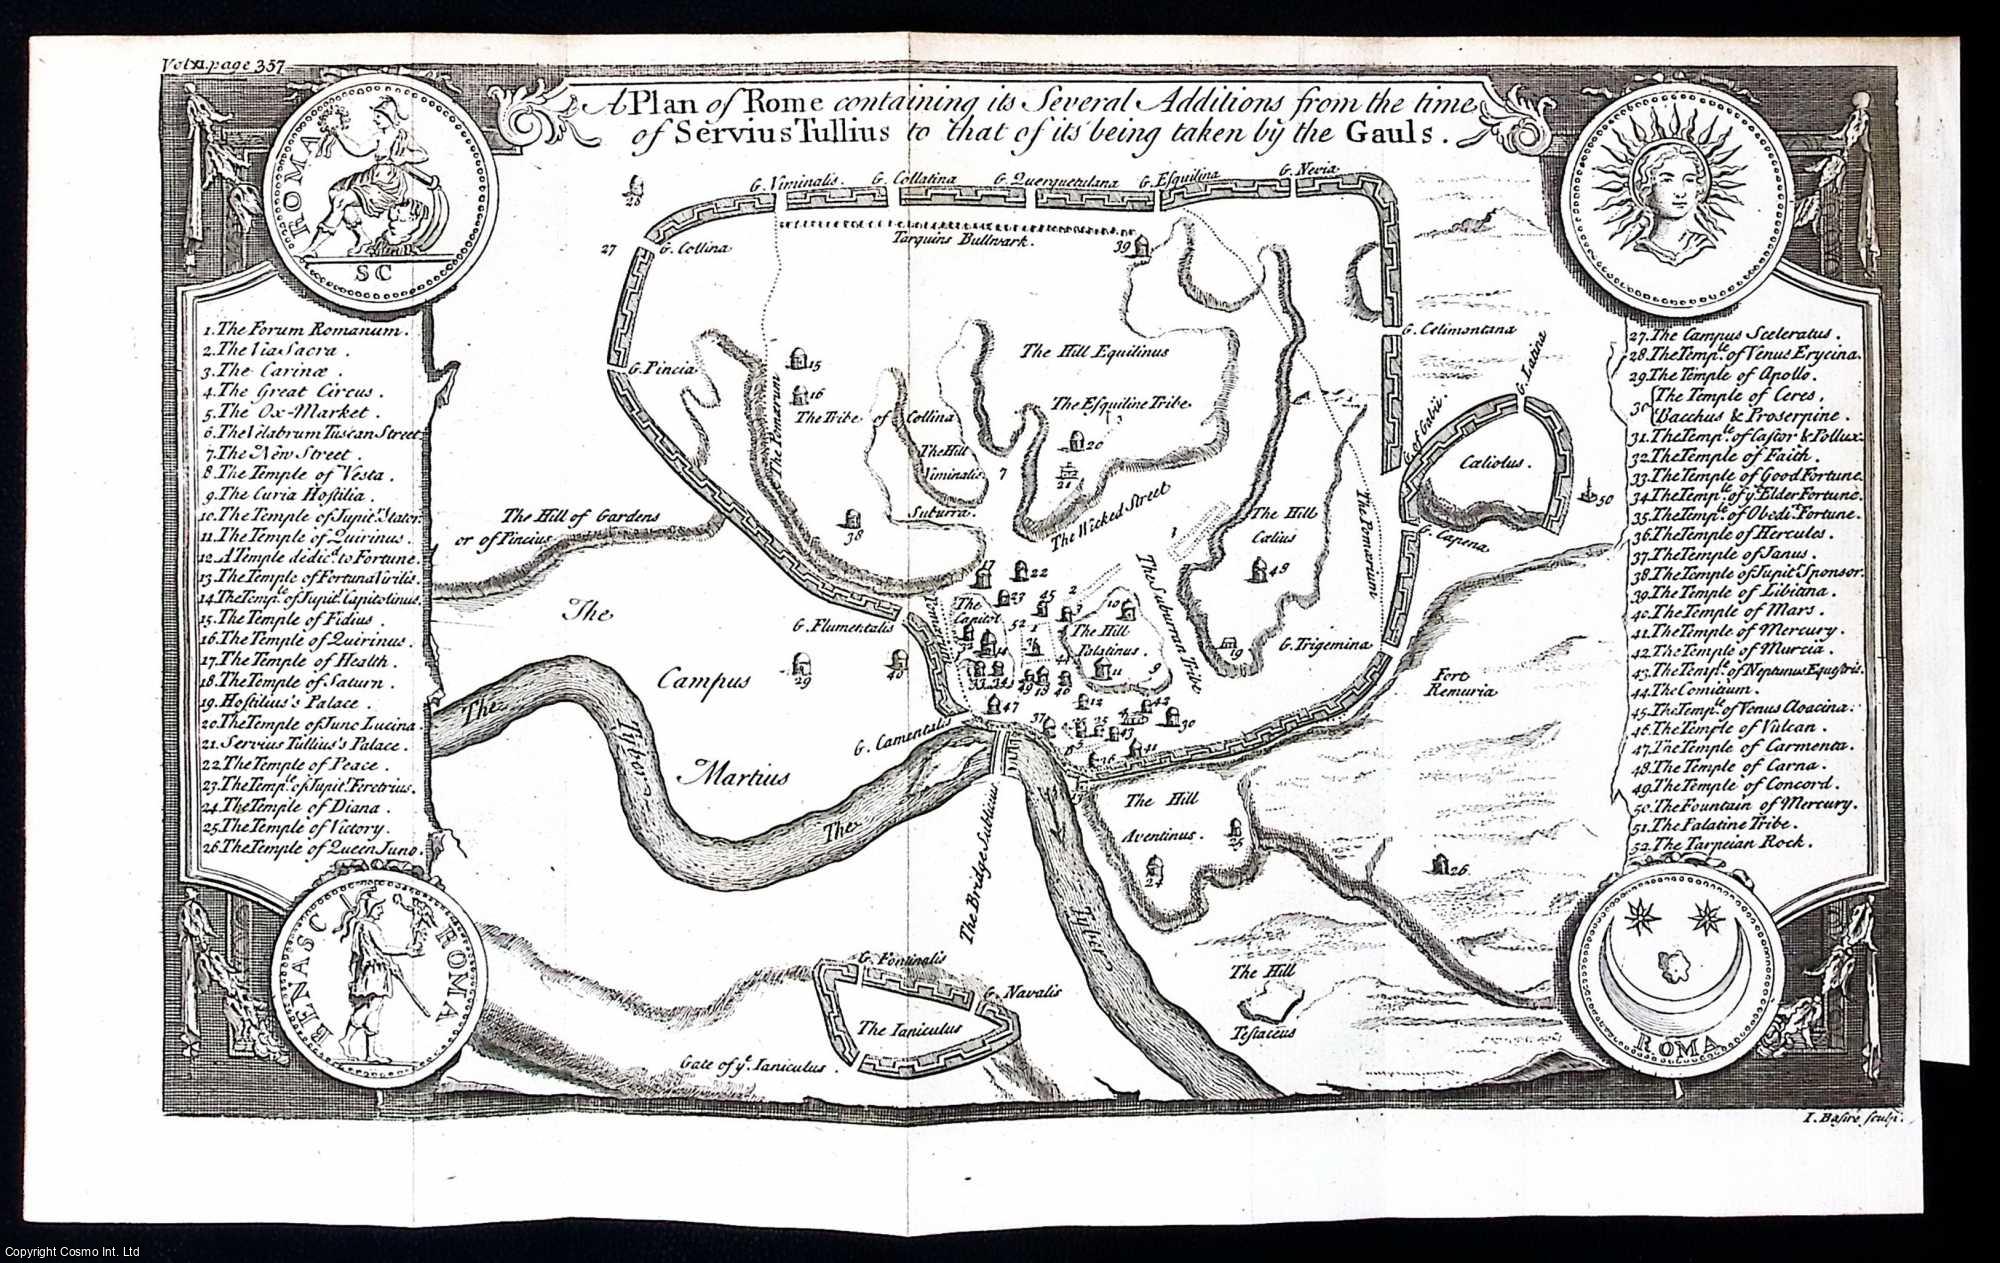 Vol XI. page 357
A Plan of Rome containing its Several Additions from the time
of Servius Tullius to that of its being taken by the Gauls.
ROMA
SC
1. The Forum Romanum.
2. The Via Sacra.
3. The Carinæ.
4. The Great Circus.
5. The Ox-Market.
6. The Velabrum Tuscan Street
7. The New Street.
8. The Temple of Vesta.
9. The Curia Hostilia.
10. The Temple of Jupit. Stator.
11. The Temple of Quirinus.
12. A Temple dedic.d to Fortune.
13. The Temple of Fortuna Virilis.
14. The Temp.le of Jupit. Capitolinus.
15. The Temple of Fidius.
16. The Temple of Quirinus.
17. The Temple of Health.
18. The Temple of Saturn.
19. Hostilius's Palace.
20. The Temple of Juno Lucina.
21. Servius Tullius's Palace.
22. The Temple of Peace.
23. The Temp.le of Jupit. Feretrius.
24. The Temple of Diana.
25. The Temple of Victory.
26. The Temple of Queen Juno.
BENASC
ROMA
28
G. Viminalis.
G. Collatina
G. Querquetulana
G. Esquilina
G. Nevia
27
G. Collina
Tarquins Bullwark.
39
G. Pincia
The Pomærium
15
16
The Hill Equilinus
G. Celimontana
G. Latina
The Tribe of Collina
The Esquiline Tribe
3
G. of Gabii.
The Hill
Viminalis
7
20
21
Cæliolus.
50
The Hill of Gardens
or of Pincius
38
Suburra.
The Wicked Street
1
The Hill
Cælius
The Pomærium
G. Capena
The Suburran Tribe
17
22
23
45
2
3
10
48
The
G. Flumentalis
Pomærium
The
Capitol
52
The Hill
Palatinus.
11
9
19
G. Trigemina
Campus
29
40
Fort
Remuria
The
Tyber
Martius
G. Carmentalis
47
12
42
30
37
43
41
The
The Bridge Sublicius
Tyber
The Hill
Aventinus.
24
25
26
G. Fontinalis
G. Navalis
The Ianiculus
Gate of y.e Ianiculus.
The Hill
Testaceus
27. The Campus Sceleratus.
28. The Temp.le of Venus Erycina.
29. The Temple of Apollo.
30 The Temple of Ceres,
Bacchus & Proserpine.
31. The Temp.le of Castor & Pollux.
32. The Temple of Faith.
33. The Temple of Good Fortune.
34. The Temp.le of y.e Elder Fortune.
35. The Temp.le of Obedi.t Fortune.
36. The Temple of Hercules.
37. The Temple of Janus.
38. The Temple of Jupit. Sponsor.
39. The Temple of Libitina.
40. The Temple of Mars.
41. The Temple of Mercury.
42. The Temple of Murcia.
43. The Temp.le of Neptunus Equestris.
44. The Comitium.
45. The Temp.le of Venus Cloacina.
46. The Temple of Vulcan.
47. The Temple of Carmenta.
48. The Temple of Carna.
49. The Temple of Concord.
50. The Fountain of Mercury.
51. The Palatine Tribe.
52. The Tarpeian Rock.
ROMA
I. Basire sculp.
Copyright Cosmo Int. Ltd